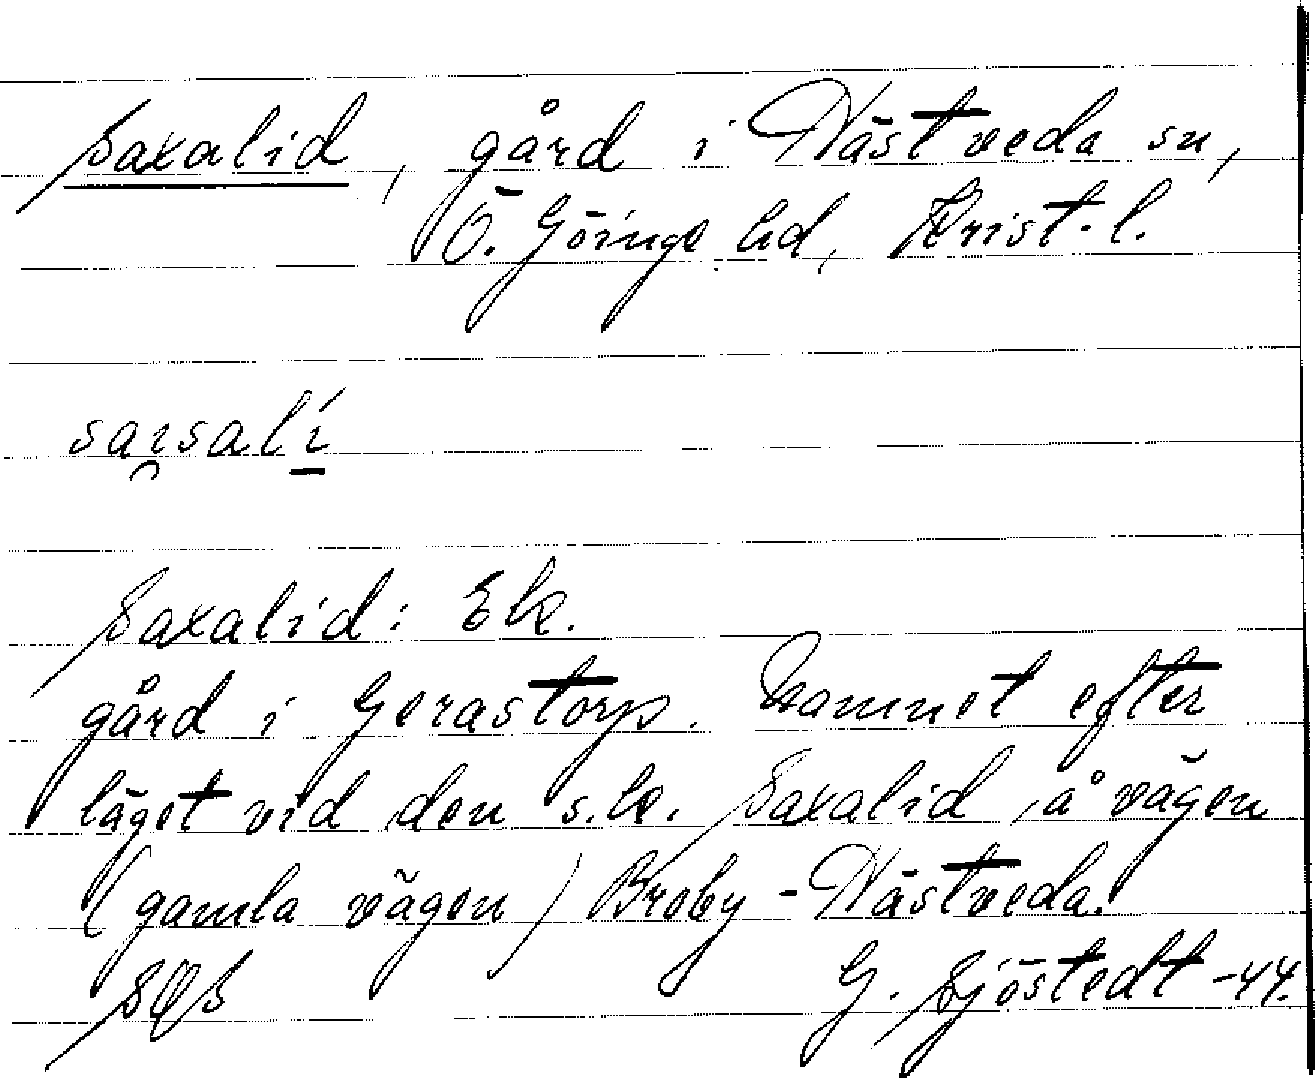 Saxalid, gård i Västveda sn,
Ö. Göinge hd, Krist. l.
Saxalid: Ek.
gård i Gerastorp. Namnet efter
läget vid den s.k. Saxalid å vägen
(gamla vägen) Broby - Västveda.
G. Sjöstedt -44.